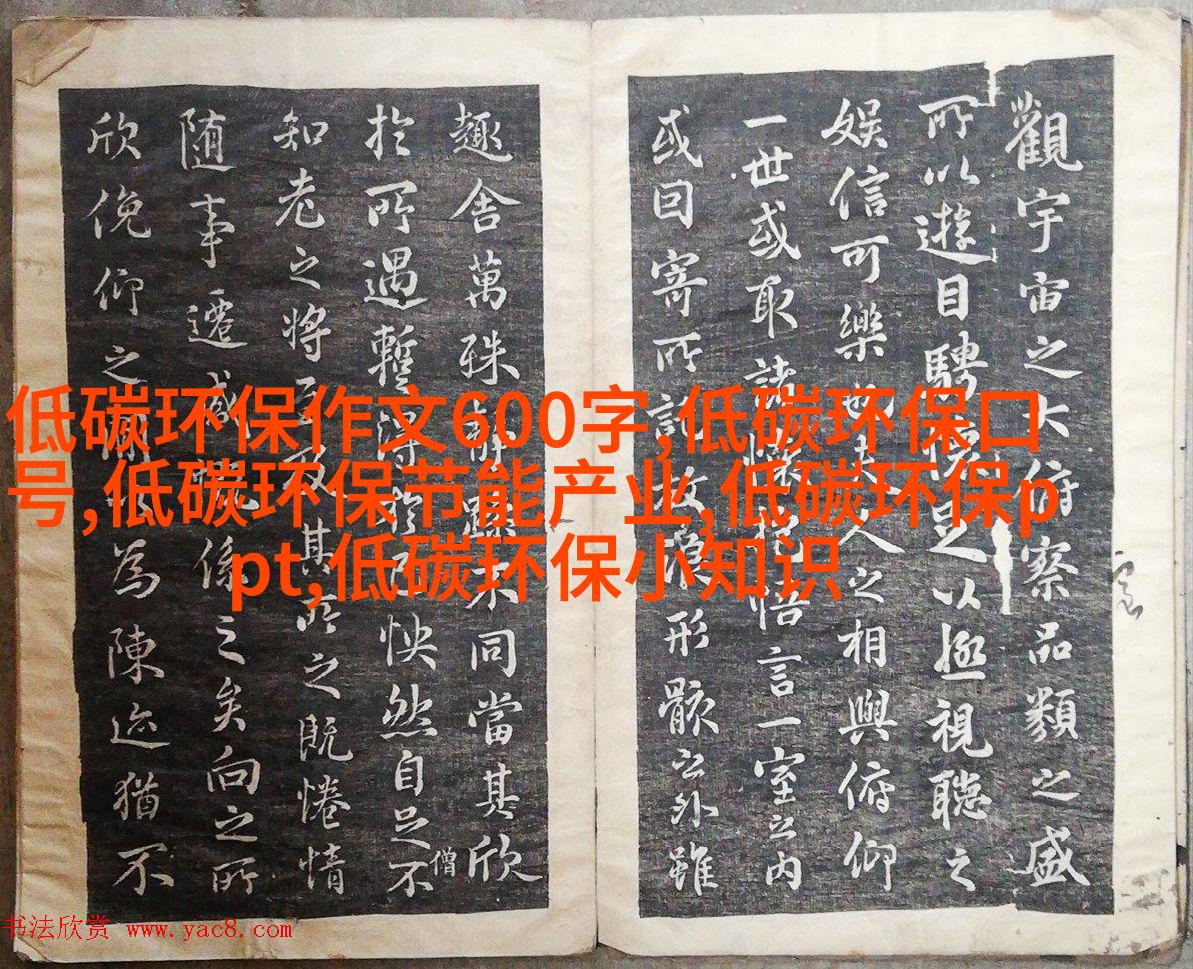 觀宇宙之大俯察品類之盛
所以遊目騁懷足以極視聽之
娛信可樂也夫人之相與俯仰
一世或取諸懷抱悟言一室之內
或因寄所託放浪形骸之外雖
趣舍萬殊靜躁不同當其欣
於所遇暫得於己怏然自足不
僧
知老之將至及其所之既惓情
隨事遷感慨係之矣向之所
欣俛仰之間以為陳迹猶不
低碳环保作文600字,低碳环保口
号,低碳环保节能产业,低碳环保p
pt,低碳环保小知识
书法欣赏 www.yac8.com